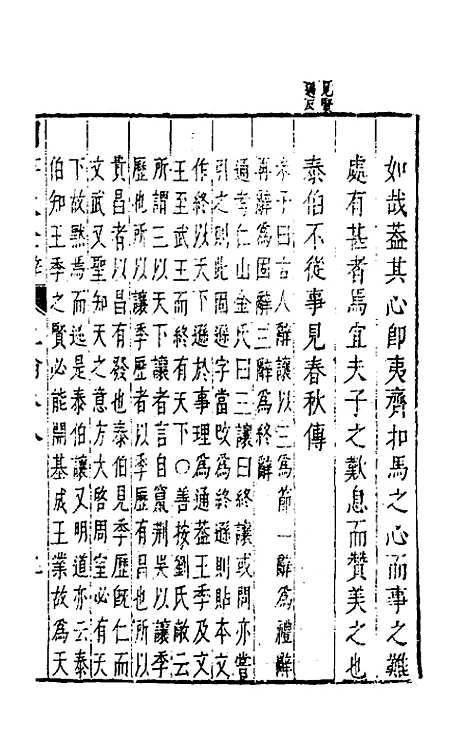 見賢
遏反
如哉蓋其心卽夷齊扣馬之心而事之難
處有甚者焉宜夫子之歎息而贊美之也
泰伯不從事見春秋傳
朱子曰古人辭讓以三爲節一辭爲禮辭
再辭爲固辭三辭爲終辭
通考仁山金氏曰三讓曰終讓或問亦嘗
引之則此固遜字當改爲終遜則貼本文
作終以天下遜於事理爲通蓋王季及文
王至武王而終有天下○善按劉氏敞云
所謂三以天下讓者言自竄荆吳以讓季
歷也所以讓季歷者以季歷有昌也所以
貴昌者以昌有發也泰伯見季歷旣仁而
文武又聖知天之意方大啓周室必有天
下故黙焉而遜是泰伯讓又明道亦云泰
伯知王季之賢必能開基成王業故爲天